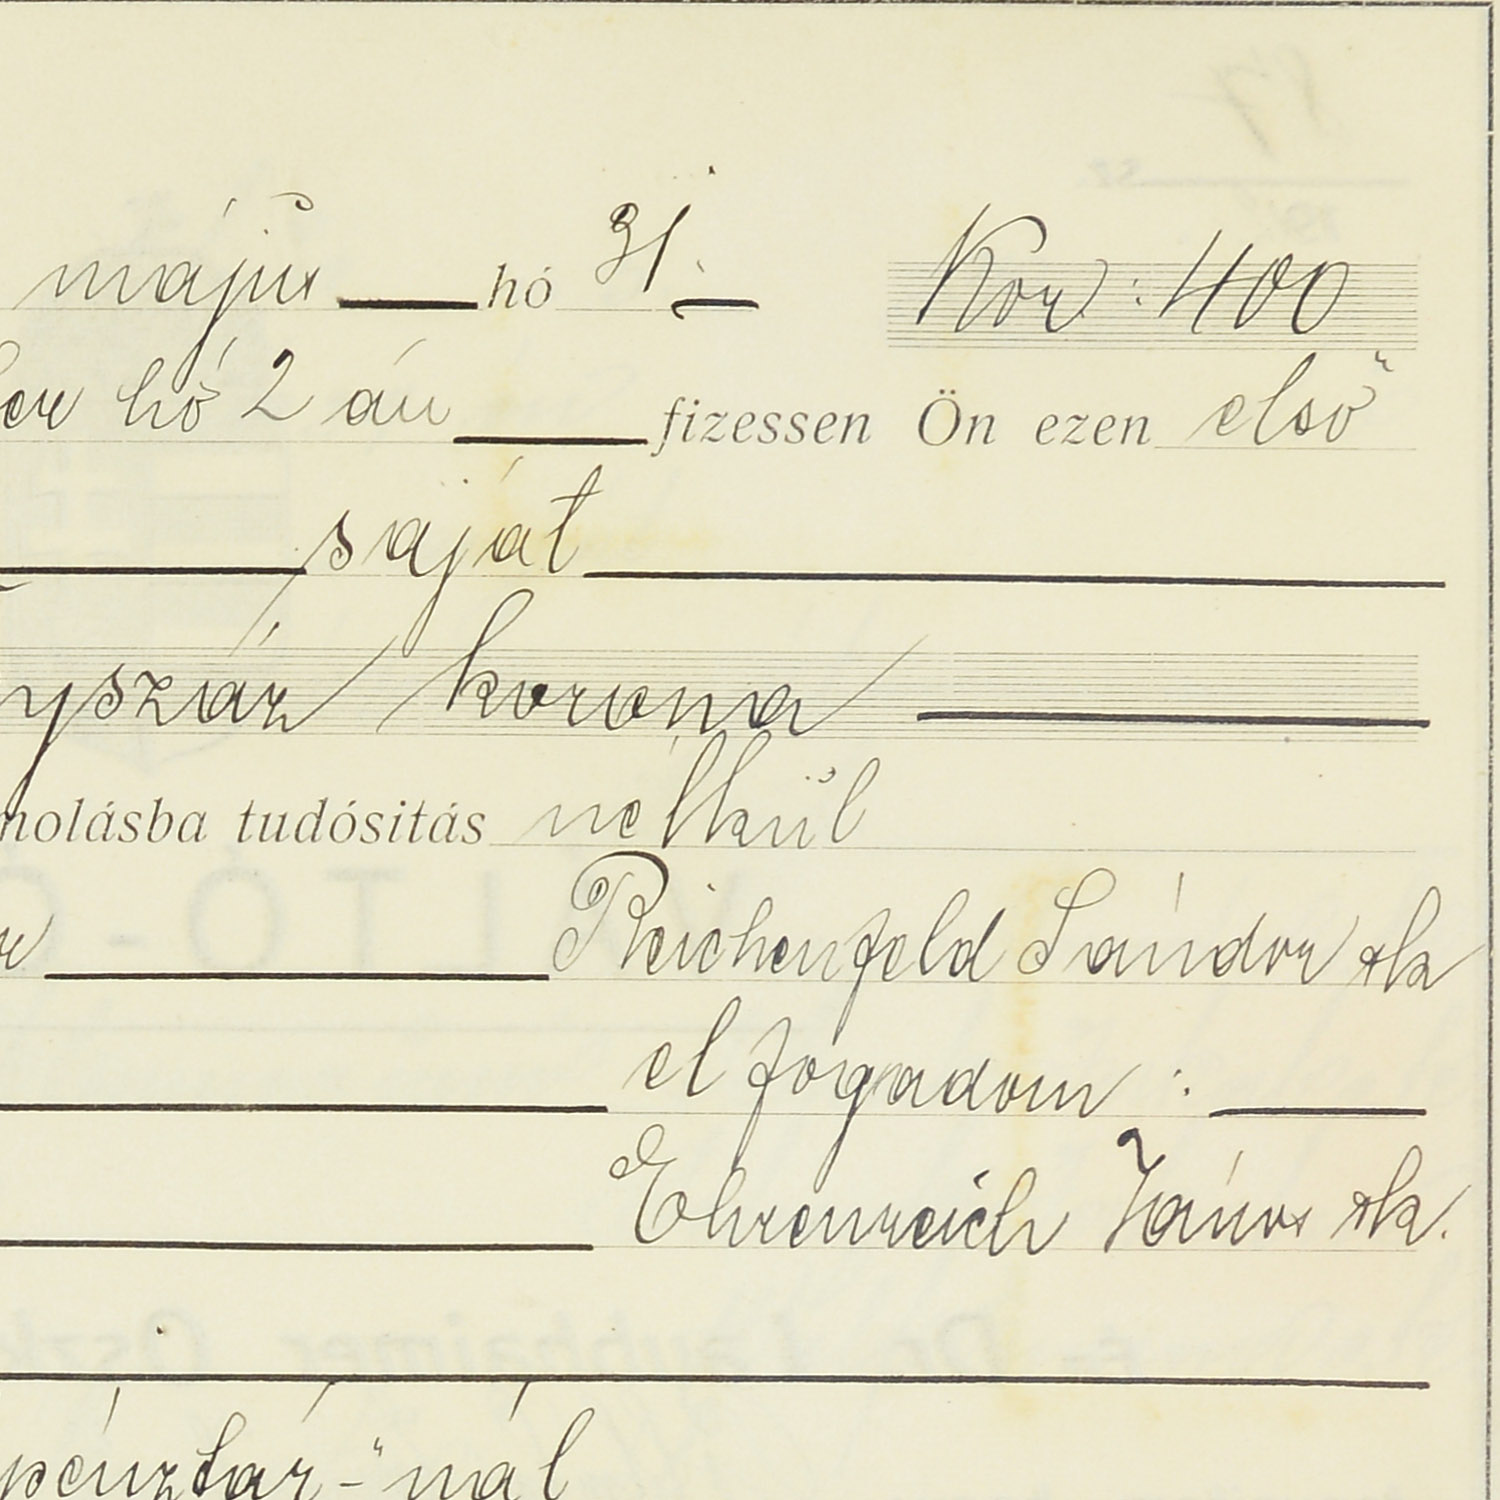 május hó 31. Kor: 400
ber hó 2 án fizessen Ön ezen első
saját
yszáz korona
molásba tudósitás nélkül
Reichenfeld Sándor sk
elfogadom :
Ehrenreich János sk.
pénztár-"nál